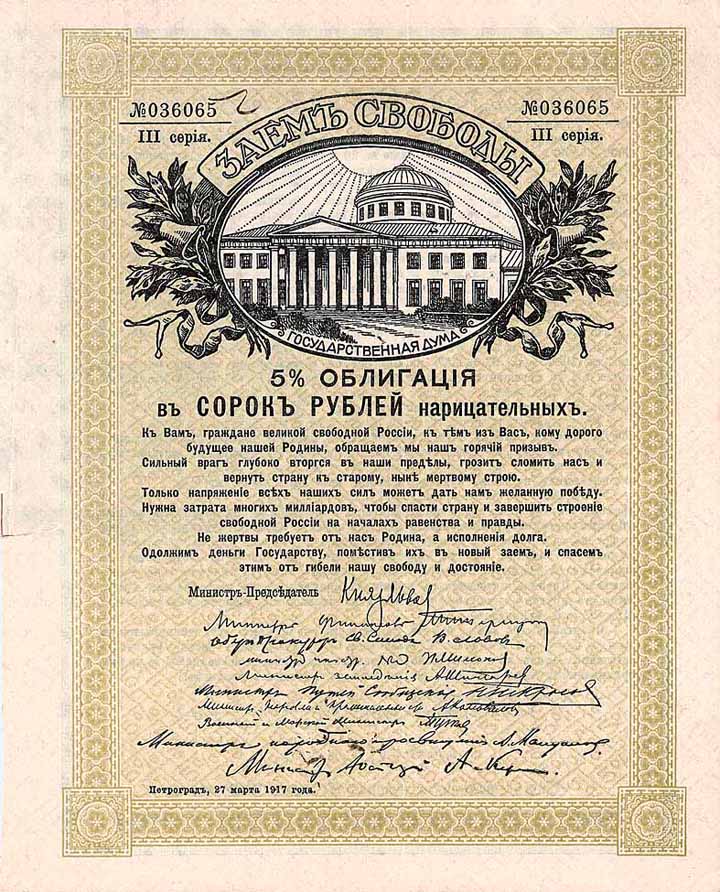 №036065 №036065
III серія. III серія.
ЗАЕМЪ СВОБОДЫ
ГОСУДАРСТВЕННАЯ ДУМА
5% ОБЛИГАЦІЯ
въ СОРОКЪ РУБЛЕЙ нарицательныхъ.
Къ Вамъ, граждане великой свободной Россіи, къ тѣмъ изъ Васъ, кому дорого
будущее нашей Родины, обращаемъ мы нашъ горячій призывъ.
Сильный врагъ глубоко вторгся въ наши предѣлы, грозитъ сломить насъ и
вернуть страну къ старому, нынѣ мертвому строю.
Только напряженіе всѣхъ нашихъ силъ можетъ дать намъ желанную побѣду.
Нужна затрата многихъ милліардовъ, чтобы спасти страну и завершить строеніе
свободной Россіи на началахъ равенства и правды.
Не жертвы требуетъ отъ насъ Родина, а исполненія долга.
Одолжимъ деньги Государству, помѣстивъ ихъ въ новый заемъ, и спасемъ
этимъ отъ гибели нашу свободу и достояніе.
Министръ-Предсѣдатель Князь Львов
Министръ Финансовъ
Обер Прокурор Св. Синода В. Львов
Министр П. Милюков
Министр земледѣлія А. Шингарев
Министръ Путей Сообщенія Н. Некрасов
Министр Торговли и Промышленности А. Коновалов
Военный и Морской Министръ Гучков
Министръ народного просвѣщенія А. Мануйлов
Министр Юстиціи А. Керенский
Петроградъ, 27 марта 1917 года.